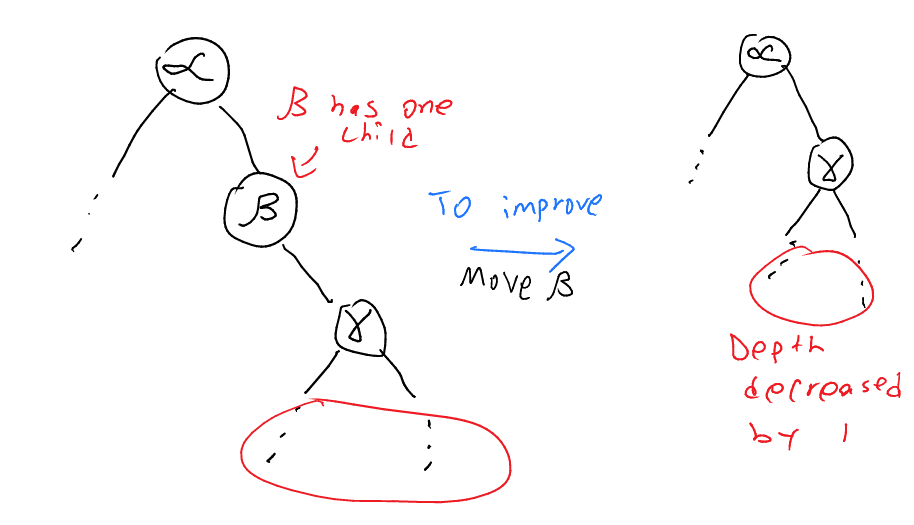 α
β has one
child
β
γ
To improve
Move β
α
γ
Depth
decreased
by 1